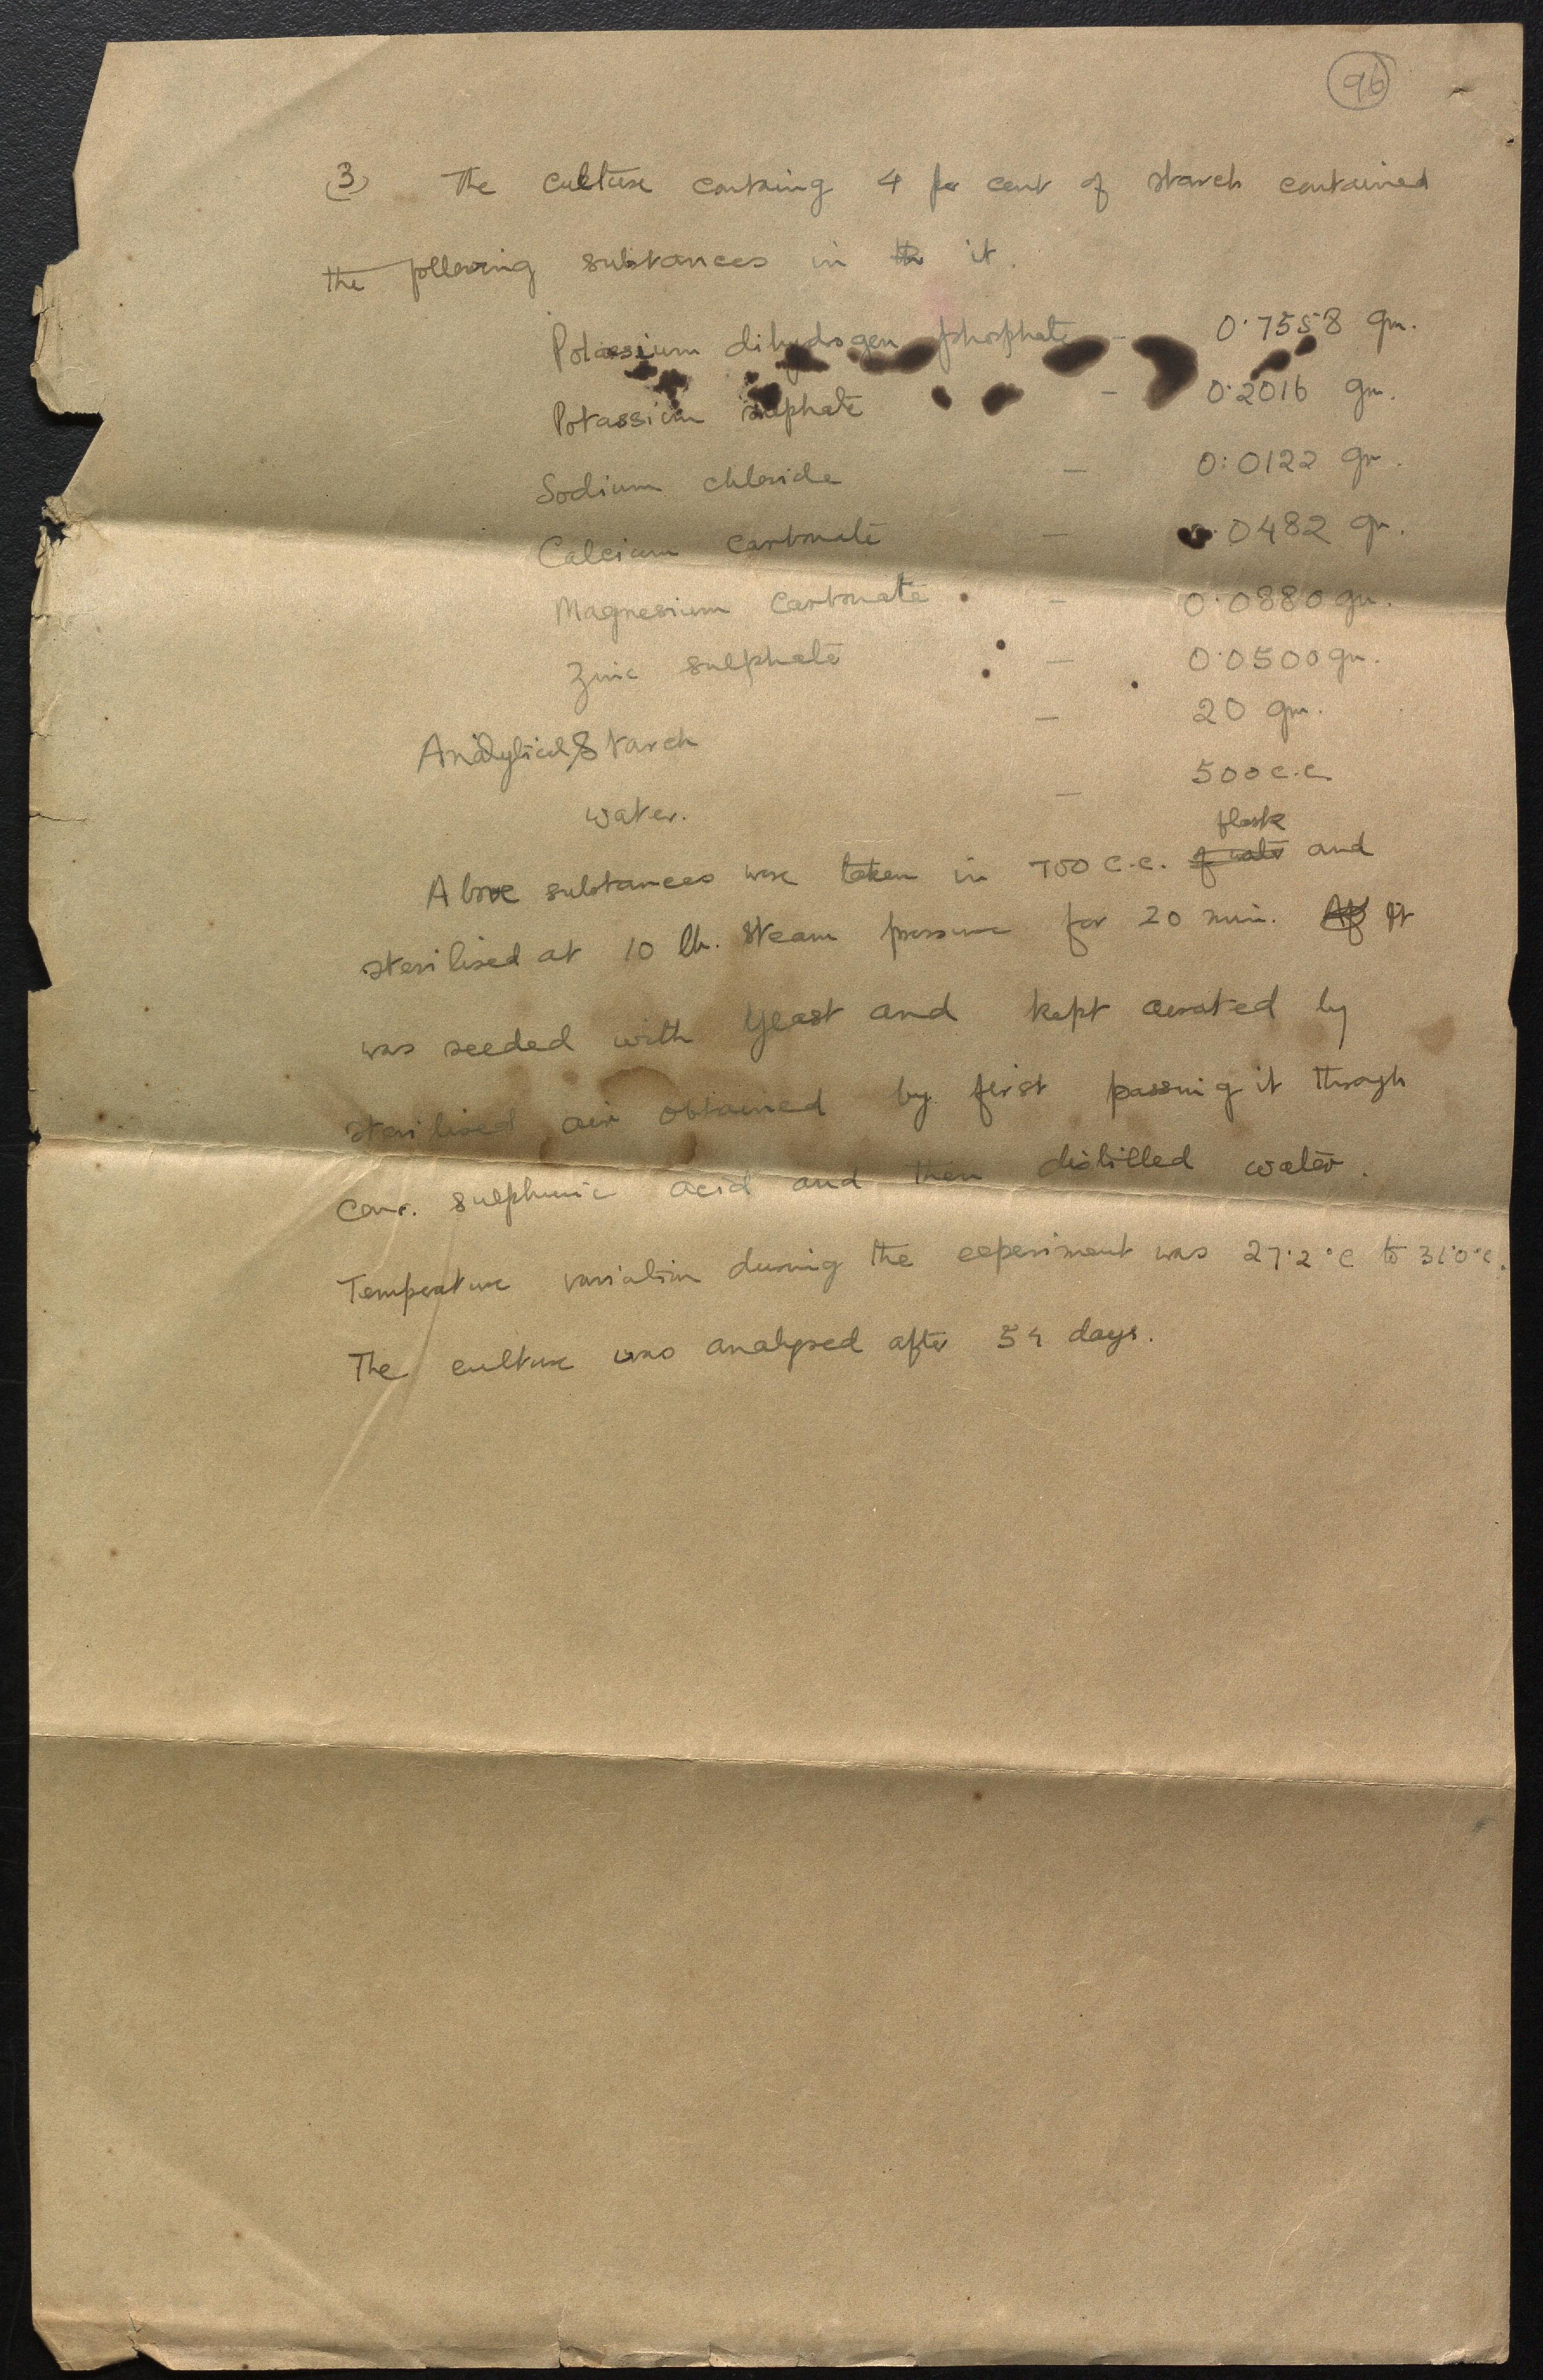 96
(3) The culture containg 4 per cent of starch contained
the following substances in the it.
Potassium dihydrogen phosphate - 0.7558 gm.
Potassium sulphate - 0.2016 gm.
Sodium chloride - 0.0122 gm.
Calcium carbonate - 0.0482 gm.
Magnesium carbonate - 0.0880 gm.
Zinc sulphate - 0.0500 gm.
Analytical Starch - 20 gm.
water. - 500 c.c.
flask
Above substances were taken in 700 c.c. of water and
sterilised at 10 lb. steam pressure for 20 min. Af It
was seeded with yeast and kept aerated by
sterilised air obtained by first passing it through
conc. sulphuric acid and then distilled water.
Temperature variation during the experiment was 27.2°C to 31.0°C.
The culture was analysed after 54 days.